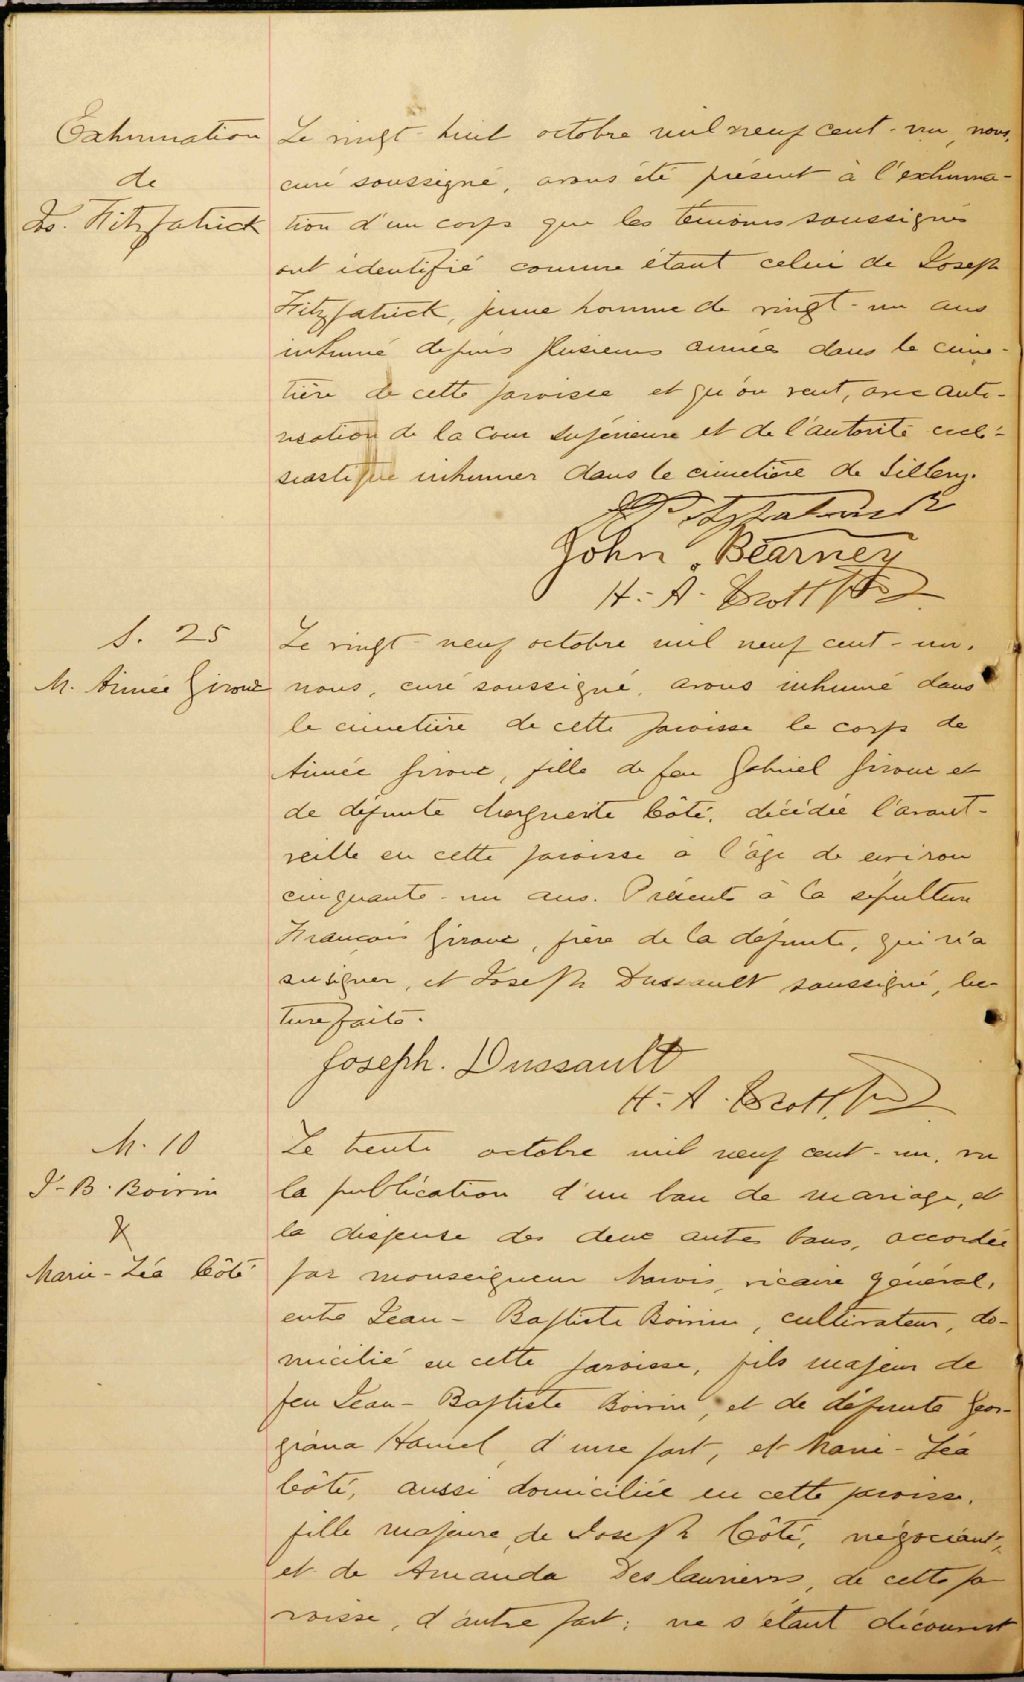 Exhumation
de
Jos. Fitzpatrick
Le vingt-huit octobre mil neuf cent-un, nous,
curé soussigné, avons été présent à l'exhuma-
tion d'un corps que les témoins soussignés
ont identifié comme étant celui de Joseph
Fitzpatrick, jeune homme de vingt-un ans
inhumé depuis plusieurs années dans le cime-
tière de cette paroisse et qu'on veut, avec auto-
risation de la Cour supérieure et de l'autorité ecclé-
siastique inhumer dans le cimetière de Sillery.
Fitzpatrick
John Bearney
H.-A. Scott Ptre
S. 25
M. Aimée Giroux
Le vingt-neuf octobre mil neuf cent-un,
nous, curé soussigné, avons inhumé dans
le cimetière de cette paroisse le corps de
Aimée Giroux, fille de feu Gabriel Giroux et
de défunte Marguerite Côté, décédée l'avant-
veille en cette paroisse à l'âge de environ
cinquante-un ans. Présents à la sépulture
François Giroux, frère de la défunte, qui n'a
su signer, et Joseph Dussault soussigné, lec-
ture faite.
Joseph. Dussault
H.-A. Scott, Ptre
M. 10
J-B. Boivin
&
Marie-Léa Côté
Le trente octobre mil neuf cent-un, vu
la publication d'un ban de mariage, et
la dispense des deux autres bans, accordée
par monseigneur Marois, vicaire général,
entre Jean-Baptiste Boivin, cultivateur, do-
micilié en cette paroisse, fils majeur de
feu Jean-Baptiste Boivin, et de défunte Geor-
giana Hamel, d'une part, et Marie-Léa
Côté, aussi domiciliée en cette paroisse,
fille majeure de Joseph Côté, négociant,
et de Amanda Deslauriers, de cette pa
roisse, d'autre part; ne s'étant découvert